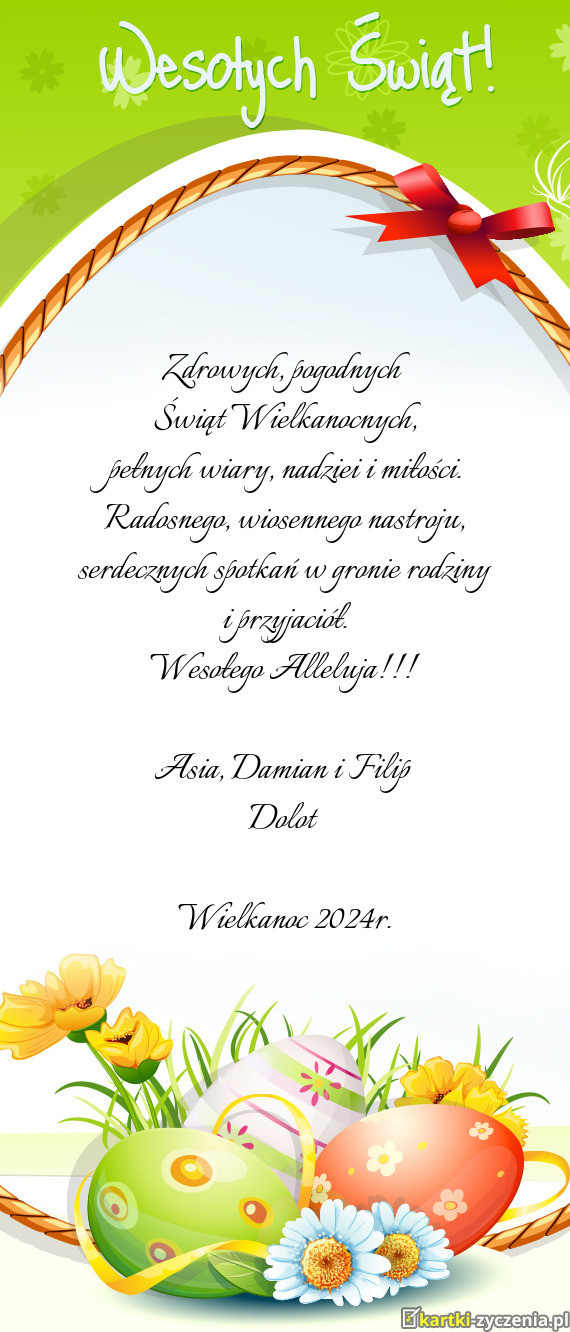 Wesołych Świąt!
Zdrowych, pogodnych
Świąt Wielkanocnych,
pełnych wiary, nadziei i miłości.
Radosnego, wiosennego nastroju,
serdecznych spotkań w gronie rodziny
i przyjaciół.
Wesołego Alleluja!!!
Asia, Damian i Filip
Dolot
Wielkanoc 2024r.
kartki-zyczenia.pl